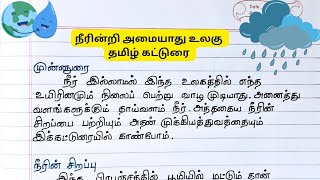 நீரின்றி அமையாது உலகு
தமிழ் கட்டுரை
முன்னுரை
நீர் இல்லாமல் இந்த உலகத்தில் எந்த
உயிரினமும் நிலைப் பெற்று வாழ முடியாது. அனைத்து
வளங்களுக்கும் தாய்வளம் நீர். அத்தகைய நீரின்
சிறப்பை பற்றியும் அதன் முக்கியத்துவத்தையும்
இக்கட்டுரையில் காண்போம்.
நீரின் சிறப்பு
இந்த பிரபஞ்சத்தில் பூமியில் மட்டும் தான்